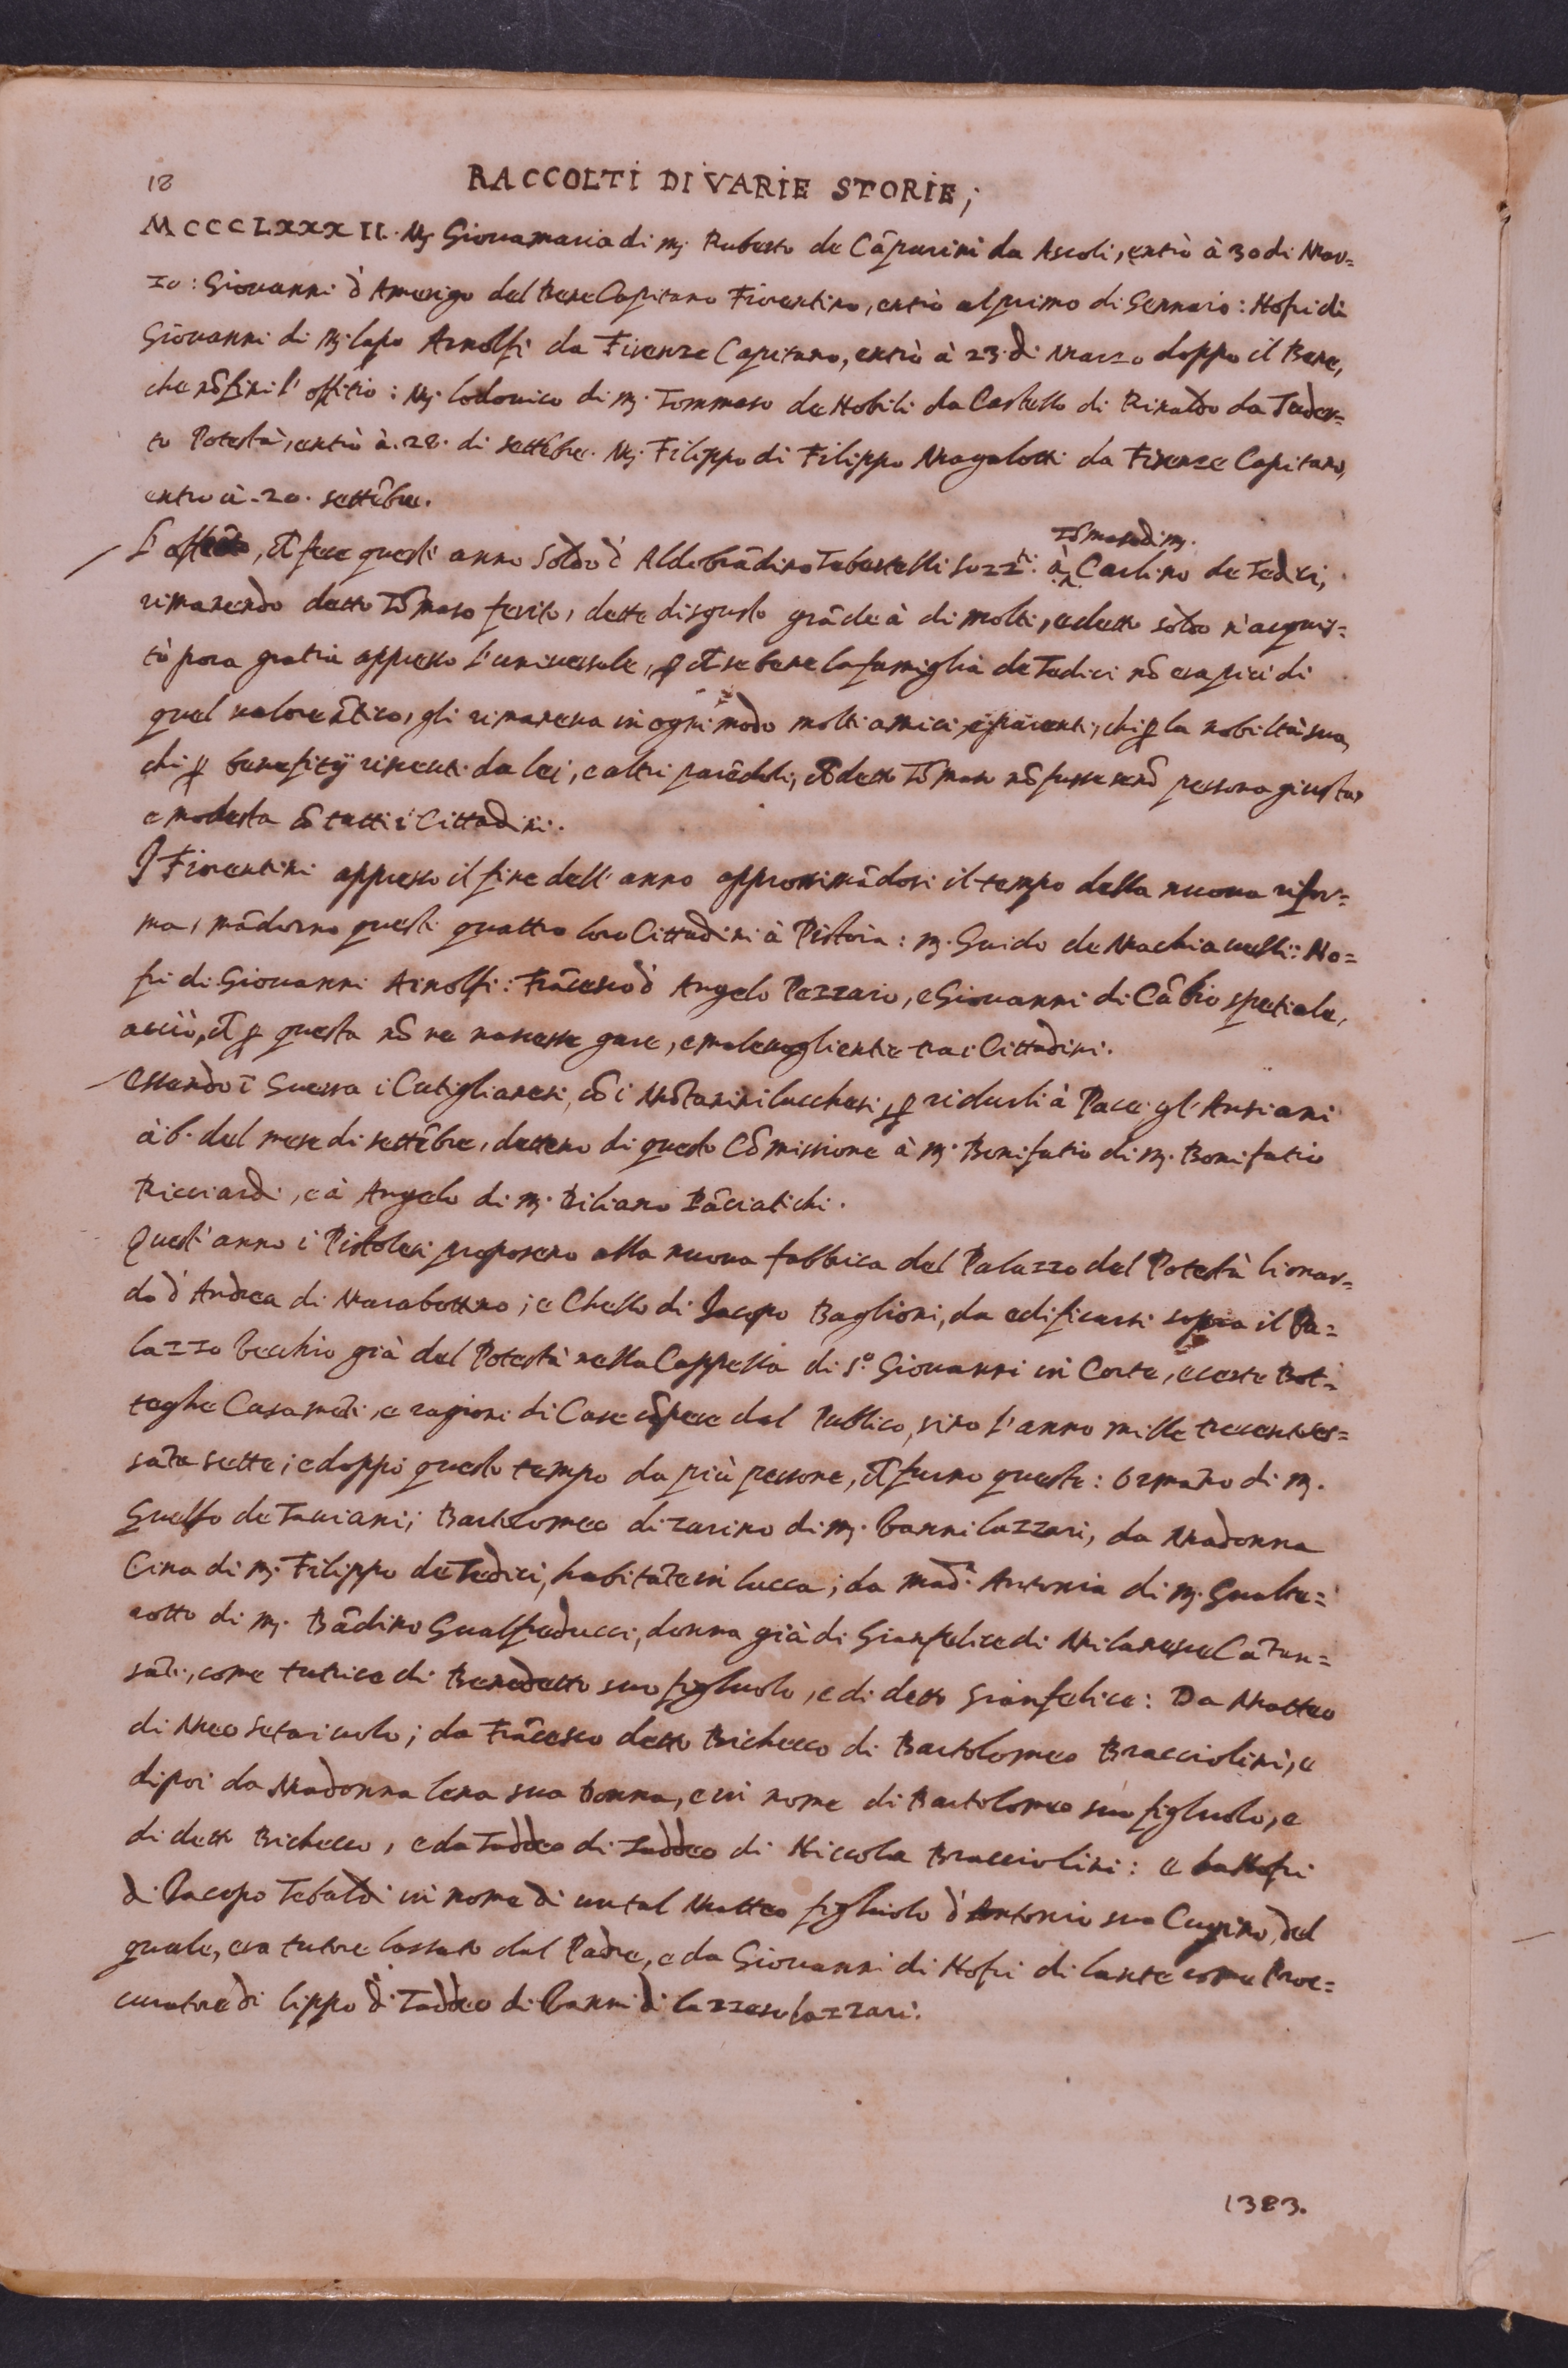 18
RACCOLTI DI VARIE STORIE;
MCCCLXXXII. Mj Giouamaria di mj. Ruberto de Cãpurini da Ascoli, entrò à 30 di Mar=
zo: Giouanni d'Amerigo del Bene Capitano Fiorentino, entrò al primo di Gennaio: Nofri di
Giouanni di mj. lapo Arnolfi da Firenze Capitano, entrò à 23. di Marzo doppo il Bene,
che nõ finì l'offitio: Mj. lodouico di mj. Tommaso de Nobili da Castello di Rinaldo da
to Potestà, entrò à. 28. di settẽbre. Mj. Filippo di Filippo Magalotti da Firenze Capitano,
entro à. 20. settẽbre.
Tõmaso di mj.
L' , fece questi anno Soldo d' Aldobrãdino Tebertelli à Carlino de Tedici,
rimanendo detto Tõmaso ferito, dette disgusto grãde à di molti, e detto soldo n'acquis=
tò poca gratia appresso l'uniuersale, se bene la famiglia de Tedici nõ era più di
quel ualore ãtico, gli rimaneua in ogni modo molti amici, e parenti, chi p la nobiltà sua,
chi p benefitij riceuti da lei, e altri parẽdoli, detto Tõmaso nõ fusse senõ persona giusta,
e modesta cõ tutti i Cittadini.
I Fiorentini appresso il fine dell' anno approssimãdosi il tempo della nuoua rifor=
ma, mãdorno questi quattro loro Cittadini à Pistoia: mj. Guido de Machiauelli: No=
fri di Giouanni Arnolfi: Frãcesco d' Angelo Pezzaio, e Giouanni di Cãbio spetiale,
acciò, p questa nõ ne nascesse gare, e maleuoglientie tra i Cittadini.
Essendo ĩ Guerra i Cutiglianesi, cõ i Mõtanini lucchesi, p ridurli à Pace gl'Antiani
à 6. del mese di settẽbre, dettero di questo Cõmissione à mj. Bonifatio di mj. Bonifatio
Ricciardi, e à Angelo di mj. Biliano Pãciatichi.
Quest' anno i Pistolesi proposero alla nuoua fabbrica del Palazzo del Potestà lionar=
do d' Andrea di Marabottino; e Chello di Jacopo Baglioni, da edificarsi sopra il Pa=
lazzo Vecchio già del Potestà nella Cappella di S.º Giouanni in Corte, e certe Bot=
teghe Casamẽti, e ragioni di Case cõpere dal Publico, sino l'anno mille trecentoses=
sãta sette; e doppo questo tempo da più persone, furno queste: Ormãno di mj.
Guelfo de Tauiani; Bartolomeo di zarino di mj. Vanni lazzari, da Madonna
Cina di mj. Filippo de Tedici, habitãte in lucca; da Madª. Antonia di mj. Gualte=
rotto di mj. Bãdino Gualfreducci, donna già di Gianfelice di Milanese Cãzan=
sãti, come tutrice di Benedetto suo figluolo, e di detto Gianfelice: Da Matteo
di Meo Setaiuolo; da Frãcesco detto Bichecco di Bartolomeo Bracciolini, e
dipoi da Madonna lena sua Donna, e in nome di Bartolomeo suo figluolo, e
di detto Bichecco, e da Taddeo di Taddeo di Niccola Bracciolini: e da Nofri
di Jacopo Tebaldi in nome di un tal Matteo figluolo d'Antonio suo Cugino, del
quale, era tutore lassato dal Padre, e da Giouanni di Nofri di lante come Proc=
curatore di lippo di Taddeo di Vanni di lazzero lazzari.
1383.